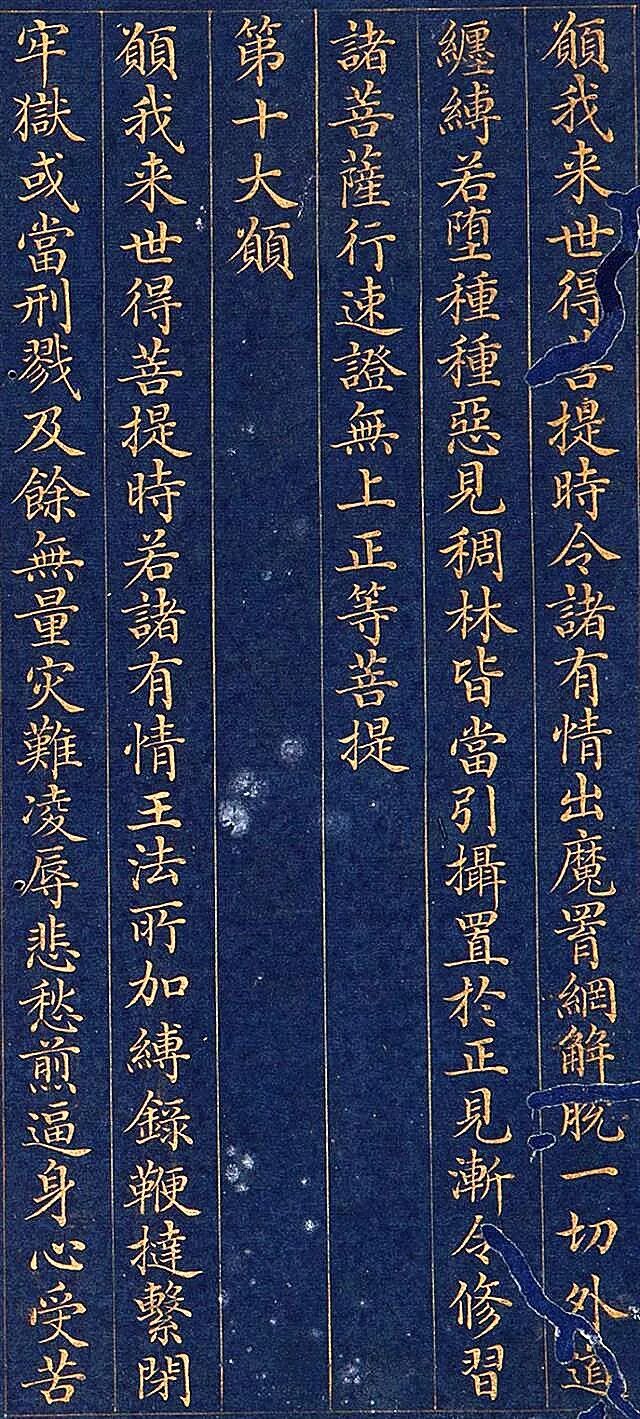 願我来世得菩提時令諸有情出魔罥網解脫一切外道
纏縛若堕種種惡見稠林皆當引攝置於正見漸令修習
諸菩薩行速證無上正等菩提
第十大願
願我来世得菩提時若諸有情王法所加縛錄鞭撻繫閉
牢獄或當刑戮及餘無量灾難凌辱悲愁煎逼身心受苦